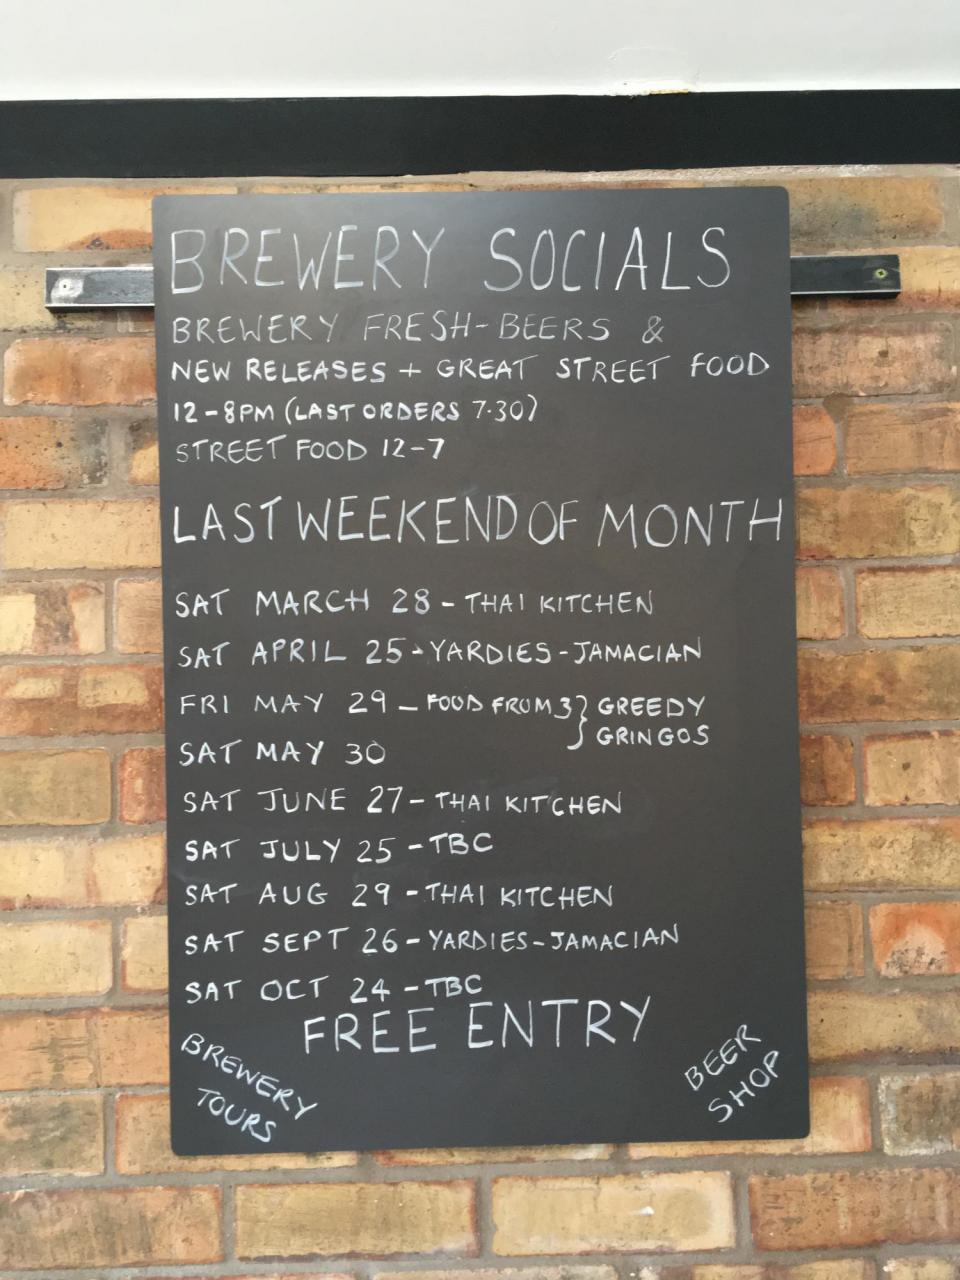 BREWERY SOCIALS
BREWERY FRESH-BEERS &
NEW RELEASES + GREAT STREET FOOD
12-8PM (LAST ORDERS 7.30)
STREET FOOD 12-7
LAST WEEKEND OF MONTH
SAT MARCH 28 - THAI KITCHEN
SAT APRIL 25 - YARDIES - JAMACIAN
FRI MAY 29 - FOOD FROM 3 } GREEDY
SAT MAY 30 GRINGOS
SAT JUNE 27 - THAI KITCHEN
SAT JULY 25 - TBC
SAT AUG 29 - THAI KITCHEN
SAT SEPT 26 - YARDIES - JAMACIAN
SAT OCT 24 - TBC
FREE ENTRY
BREWERY
TOURS
BEER
SHOP